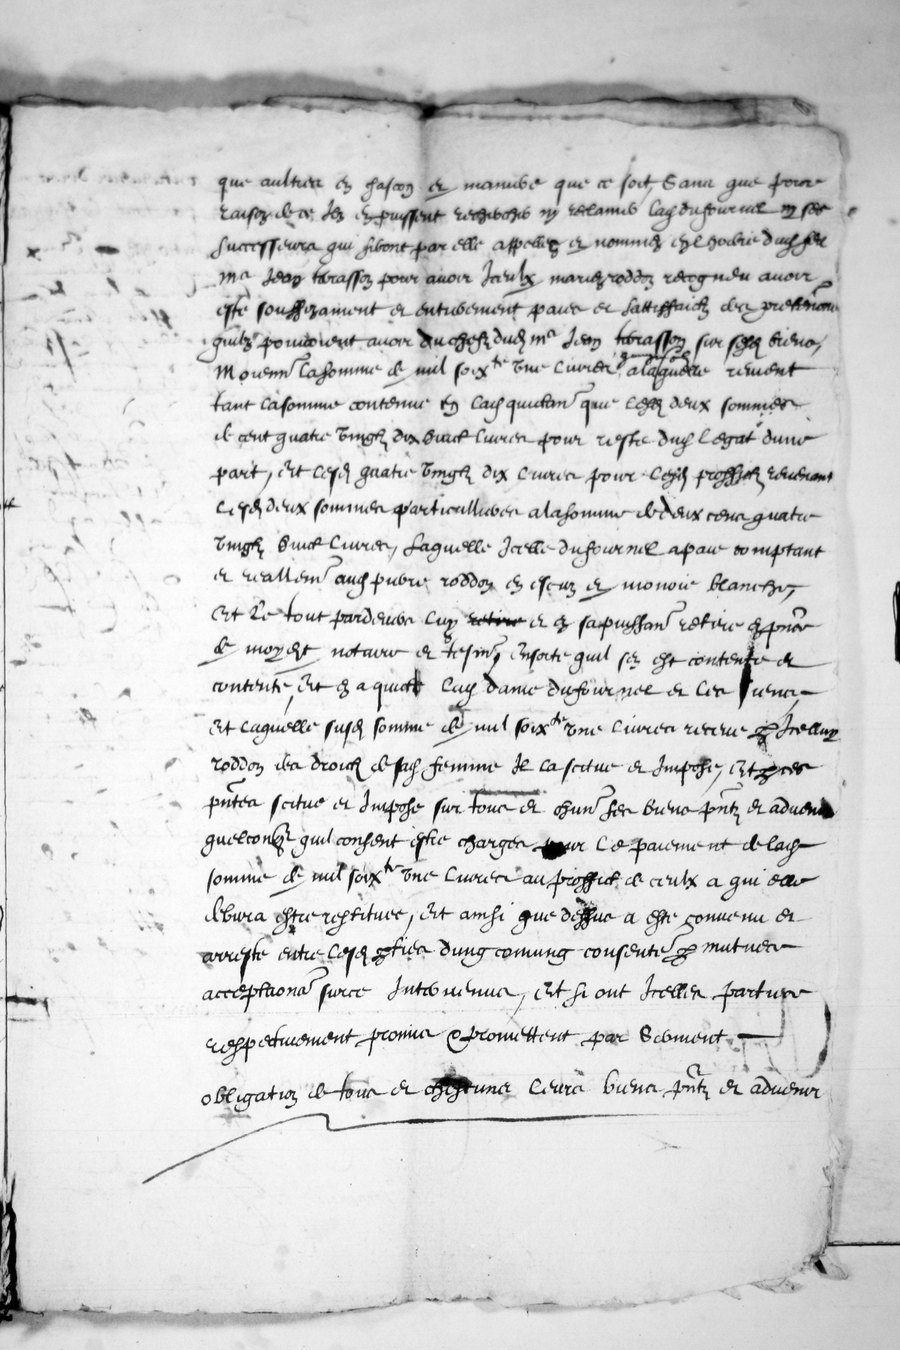 que aultres en fasson et maniere que ce soit, Sans que pour
raison de ce Ilz en puissent rechercher ny reclamer lad dufournel ny ses
successeurs qui seront par elle appellez et nommez en l hoirie dud feu
me Jean terasson pour avoir Iceulx mariez roddon recogneu avoir
este souffizament et entierement paiez et sattisffaictz des pretentions
quilz pouvoient avoir du chef dud me Jean terrasson sur sesd biens,
Moienn la somme de mil soixte une livres a laquelle revient
tant la somme contenue en lad quictan que lesd deux sommes
de cent quatre vingtz dix huict livres pour reste dud legat dune
part, Et lesd quatre vingtz dix livres pour lesd proffictz revenant
lesd deux sommes particullieres a la somme de deux cens quatre
vingtz huict livres, laquelle Icelle dufournel a paie comptant
et reallemt aud pierre roddon en escuz et monoie blanche,
Et le tout pardevers luy et en sa puissan retire en pnce
de moy dt notaire et tesmn, Ensorte quil sen est contente et
contente, Et en a quicte lad dame dufournel et les siens
Et laquelle susd somme de mil soixte une livres receue p Icelluy
roddon des droictz de sad femme Il la scitue et Impose, Et p ces
pntes scitue et Impose sur tous et chun ses biens pntz et advenir
quelconqz quil consent estre charges pour le paiement de lad
somme de mil soixte une livres au proffict de ceulx a qui elle
debvra estre restituee, Et ainsi que dessus a este convenu et
arreste entre lesd pties dung comung consente p mutues
acceptaons surce Intervenues, Et si ont Icelles parties
respectivement promis & promettent par Serment
obligation de tous et chescuns leurs biens pntz et advenir